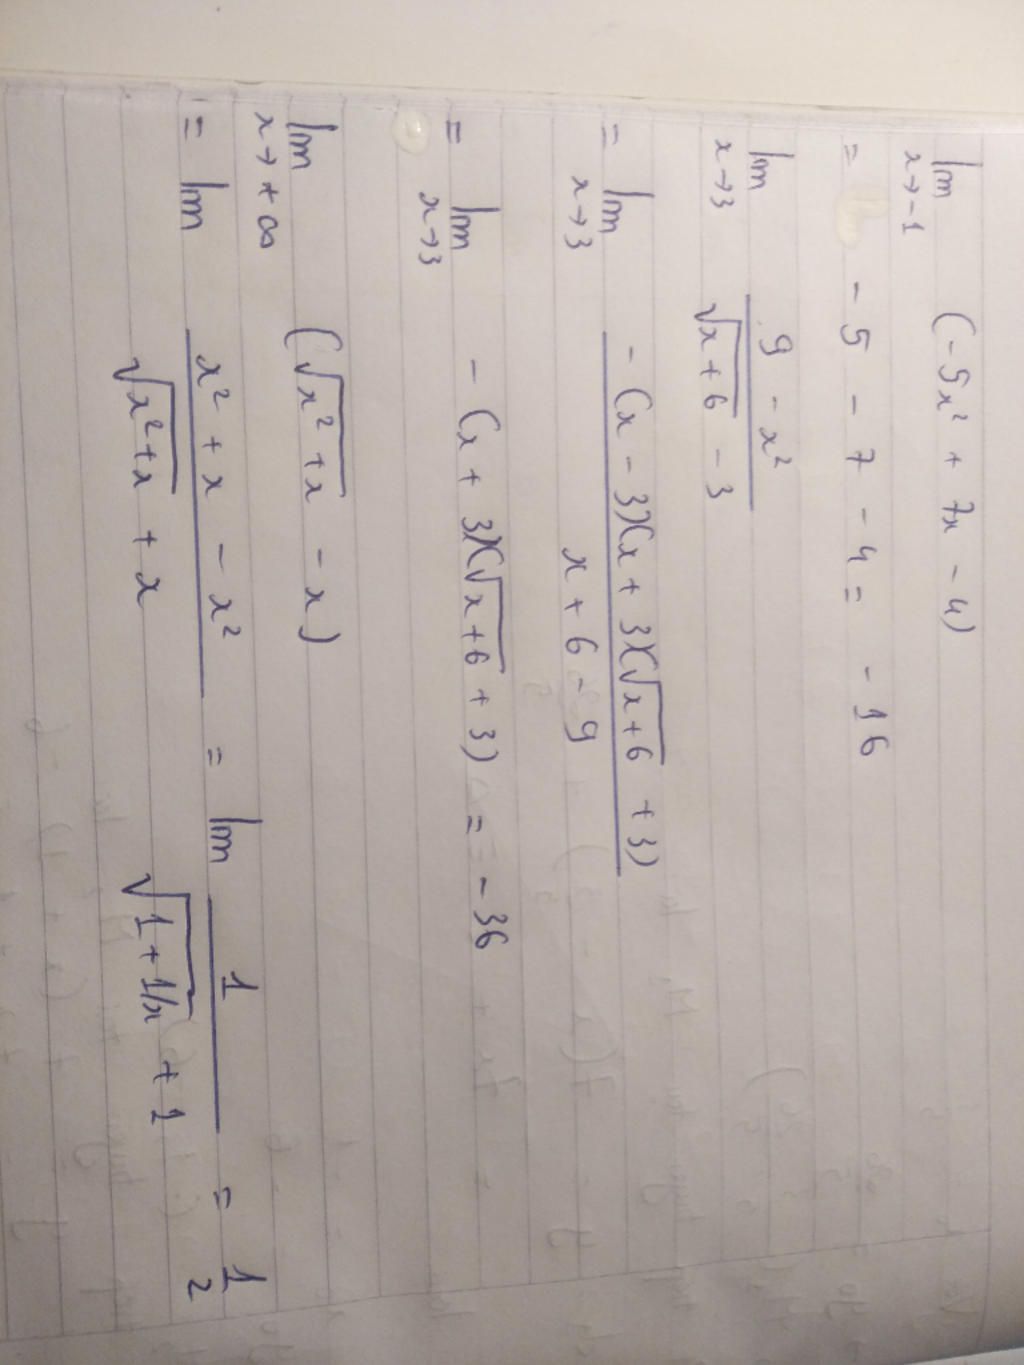 lim x→-1 (-5x² + 7x - 4)
= -5 - 7 - 4 = -16
lim x→3 (9 - x²)/(√(x+6) - 3)
= lim x→3 (-(x - 3)(x + 3)(√(x+6) + 3))/(x + 6 - 9)
= lim x→3 -(x + 3)(√(x+6) + 3) = -36
lim x→+∞ (√(x²+x) - x)
= lim (x² + x - x²)/(√(x²+x) + x) = lim 1/(√(1+1/x) + 1) = 1/2